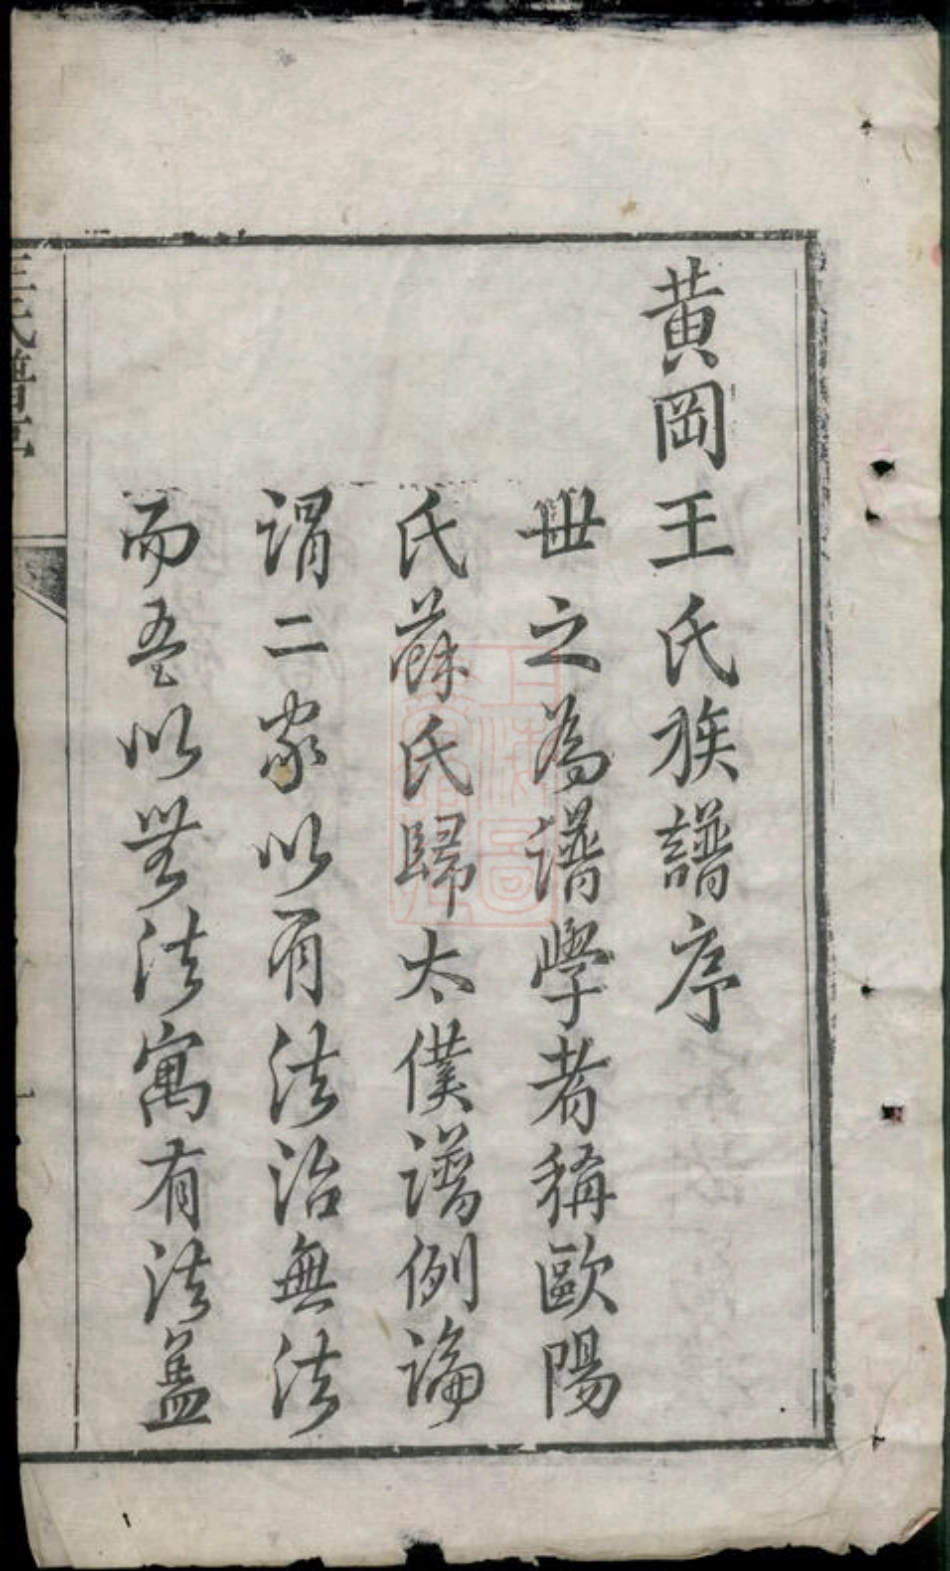 黄岡王氏族譜序
世之為譜學者稱歐陽
氏蘇氏歸太僕譜例論
謂二家以有法治無法
而吾以無法寓有法蓋
王氏譜序